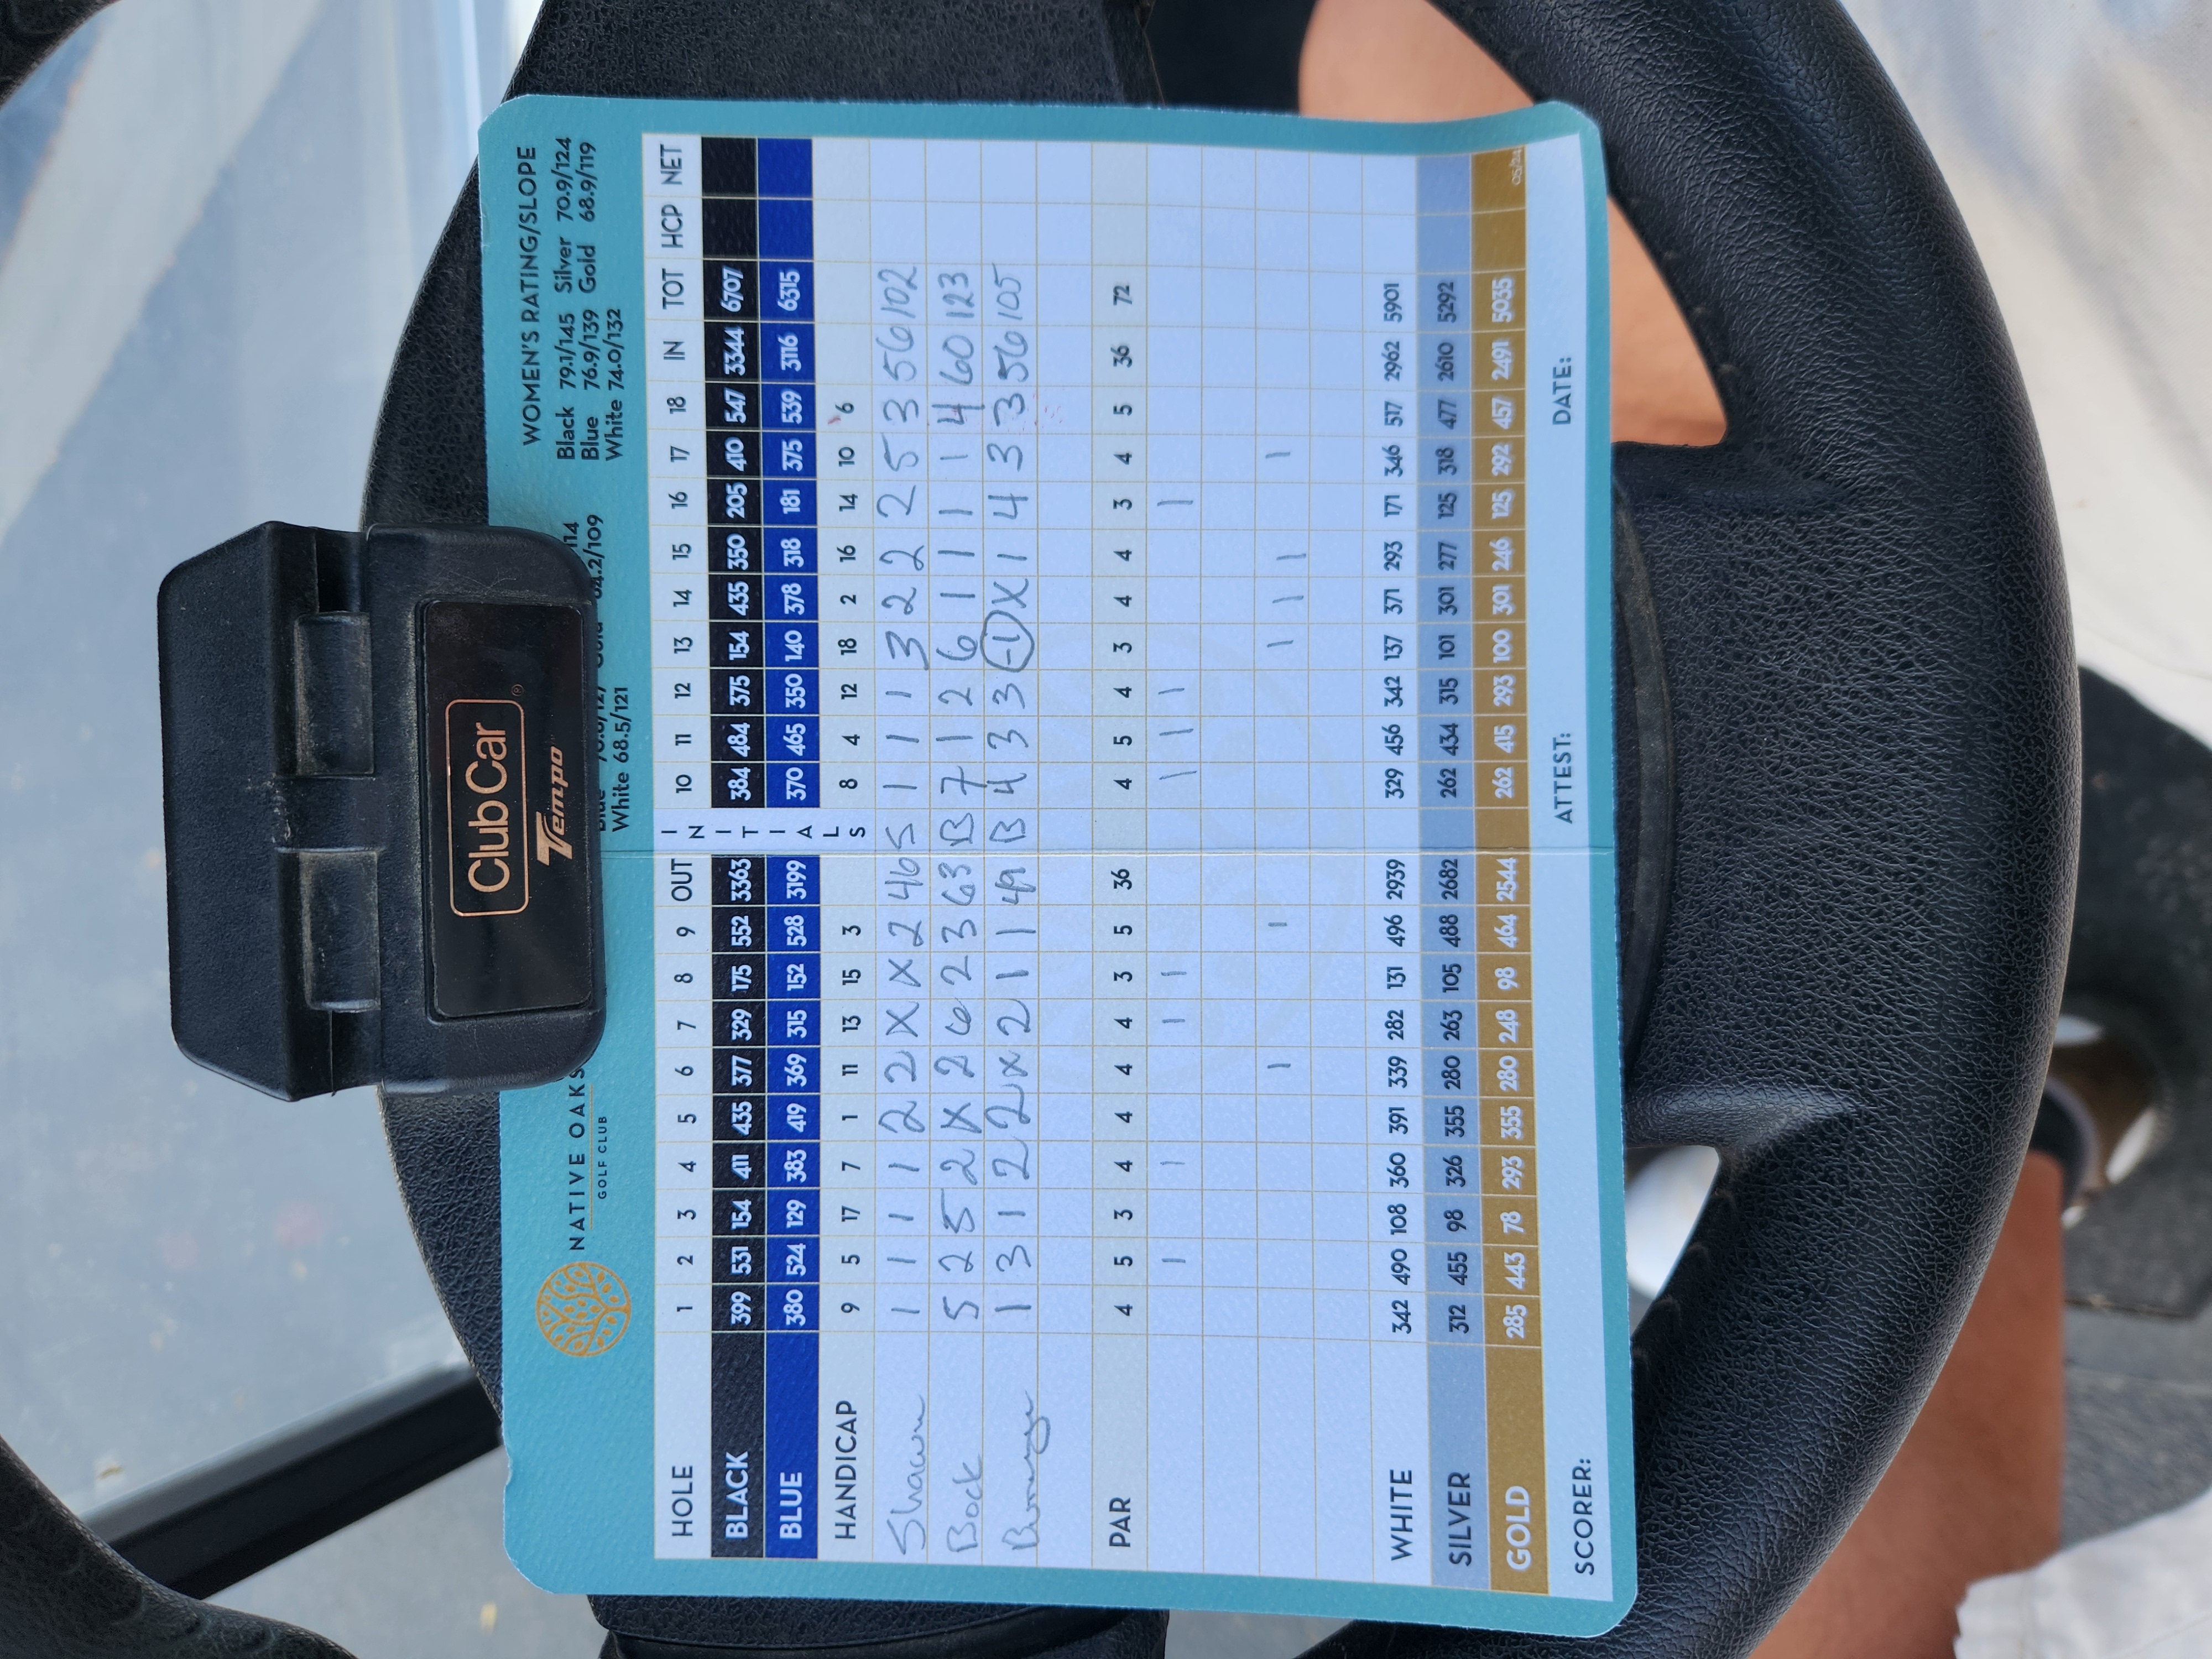 Club Car
Tempo
NATIVE OAKS
GOLF CLUB
WOMEN'S RATING/SLOPE
/114
Black 79.1/145 Silver 70.9/124
Blue 70.8/127 Gold 64.2/109
Blue 76.9/139 Gold 68.9/119
White 68.5/121
White 74.0/132
HOLE 1 2 3 4 5 6 7 8 9 OUT INITIALS 10 11 12 13 14 15 16 17 18 IN TOT HCP NET
BLACK 399 531 154 411 435 377 329 175 552 3363 384 484 375 154 435 350 205 410 547 3344 6707
BLUE 380 524 129 383 419 369 315 152 528 3199 370 465 350 140 378 318 181 375 539 3116 6315
HANDICAP 9 5 17 7 1 11 13 15 3 8 4 12 18 2 16 14 10 6
Shawn 1 1 1 1 2 2 X X 2 46 S 1 1 1 3 2 2 2 5 3 56 102
Bock 5 2 5 2 X 2 6 2 3 63 B 7 1 2 6 1 1 1 1 4 60 123
1 3 1 2 2 X 2 1 1 49 B 4 3 3 -1 X 1 4 3 3 56 105
PAR 4 5 3 4 4 4 4 3 5 36 4 5 4 3 4 4 3 4 5 36 72
1 1 1 1 1 1 1 1
1 1 1 1 1 1
WHITE 342 490 108 360 391 339 282 131 496 2939 329 456 342 137 371 293 171 346 517 2962 5901
SILVER 312 455 98 326 355 280 263 105 488 2682 262 434 315 101 301 277 125 318 477 2610 5292
GOLD 285 443 78 293 355 280 248 98 464 2544 262 415 293 100 301 246 125 292 457 2491 5035
05/24
SCORER: ATTEST: DATE: